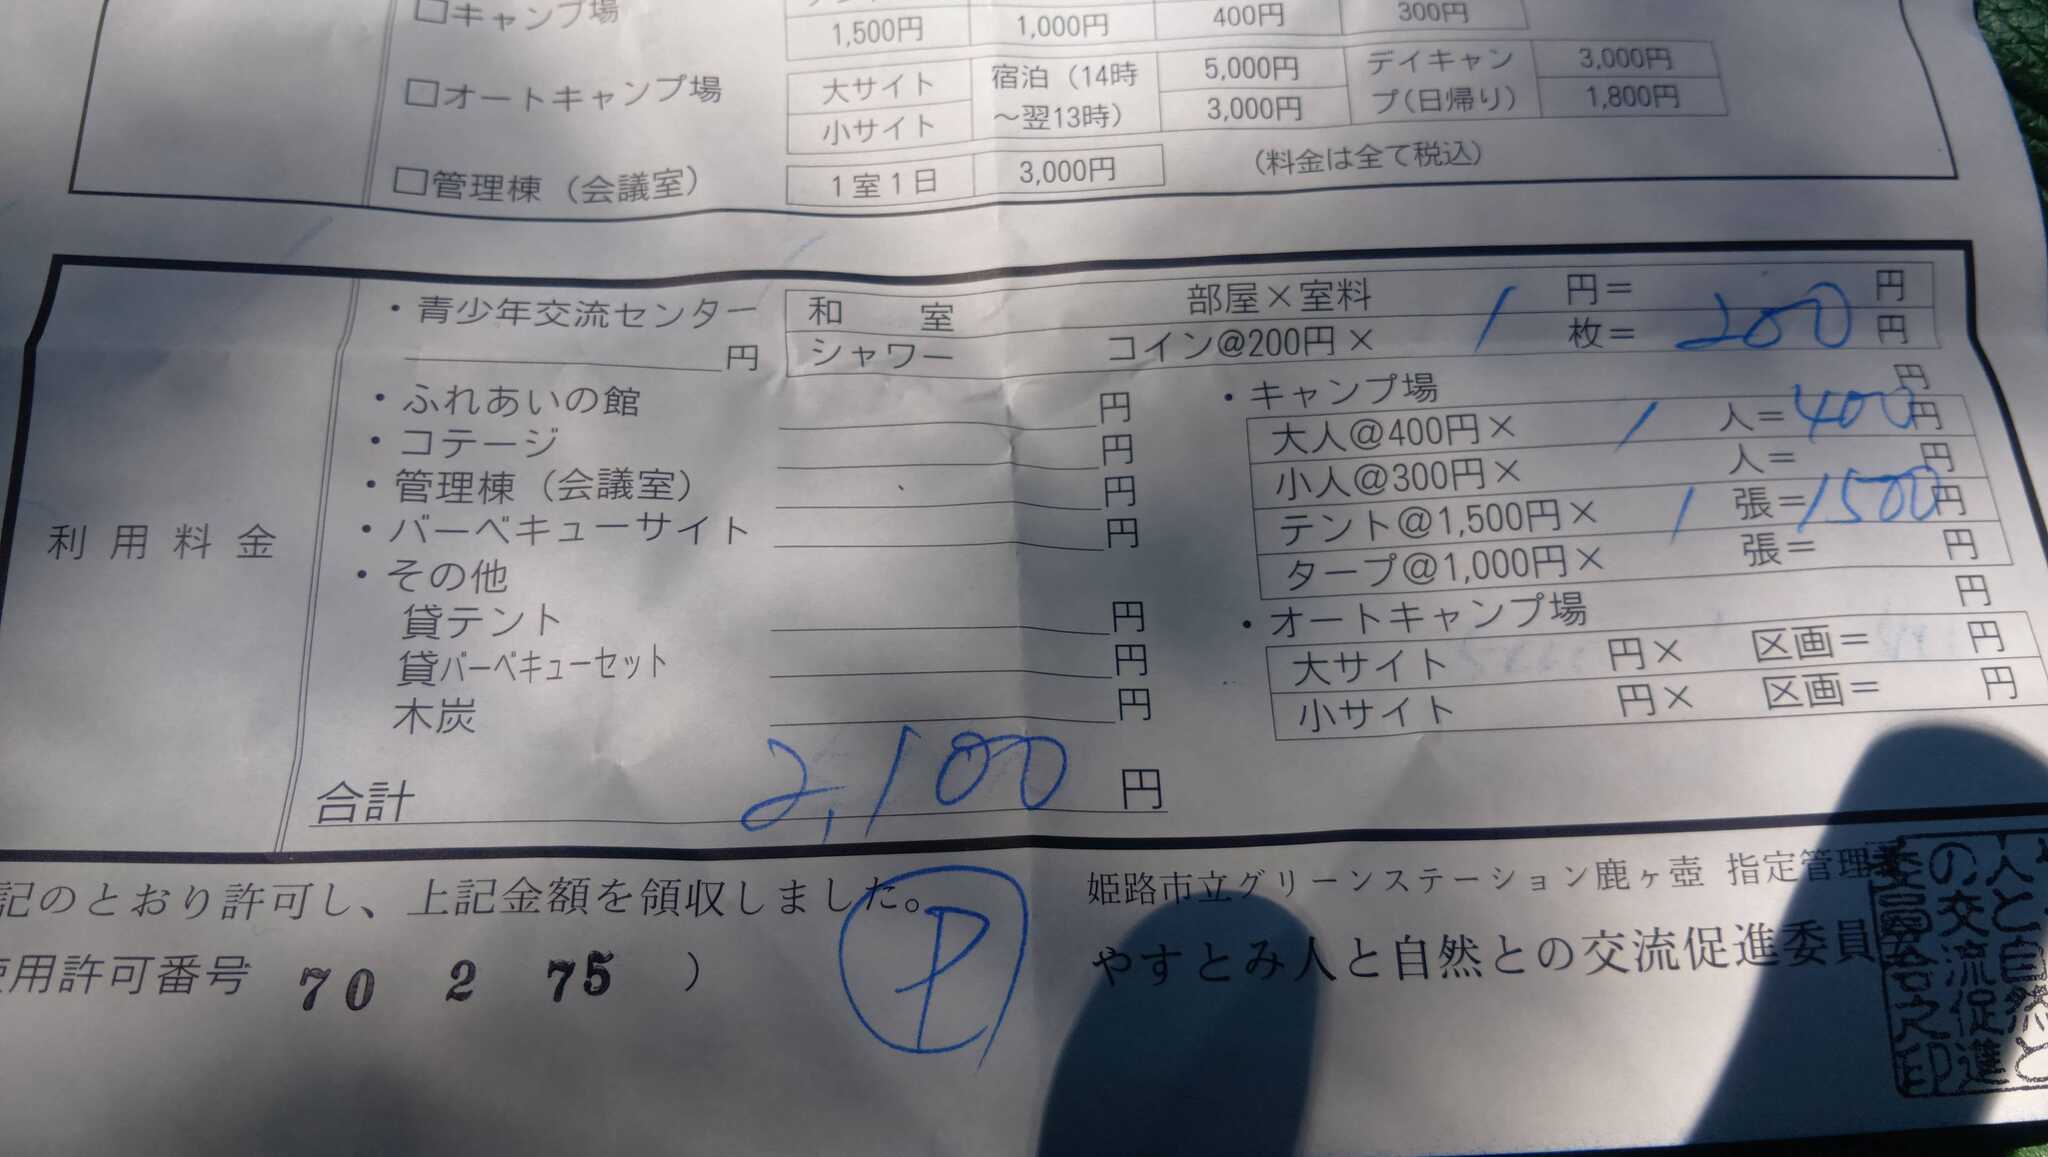 □キャンプ場
1,500円 1,000円 400円 300円
□オートキャンプ場 大サイト 宿泊（14時 5,000円 デイキャン 3,000円
小サイト ～翌13時） 3,000円 プ(日帰り） 1,800円
□管理棟（会議室） 1室1日 3,000円 （料金は全て税込）
利用料金
・青少年交流センター 和 室 部屋×室料 円＝ 円
円 シャワー コイン@200円× 1 枚＝ 200 円
・ふれあいの館 円
・コテージ 円
・管理棟（会議室） 円
・バーベキューサイト 円
・その他
貸テント 円
貸バーベキューセット 円
木炭 円
・キャンプ場 円
大人@400円× 1 人＝ 400 円
小人@300円× 人＝ 円
テント@1,500円× 1 張＝ 1500 円
タープ@1,000円× 張＝ 円
・オートキャンプ場 円
大サイト 円× 区画＝ 円
小サイト 円× 区画＝ 円
合計 2,100 円
記のとおり許可し、上記金額を領収しました。
用許可番号 70 2 75 ）
P
姫路市立グリーンステーション鹿ヶ壺 指定管理
やすとみ人と自然との交流促進委員
人と自然と
の交流促進
委員会之印